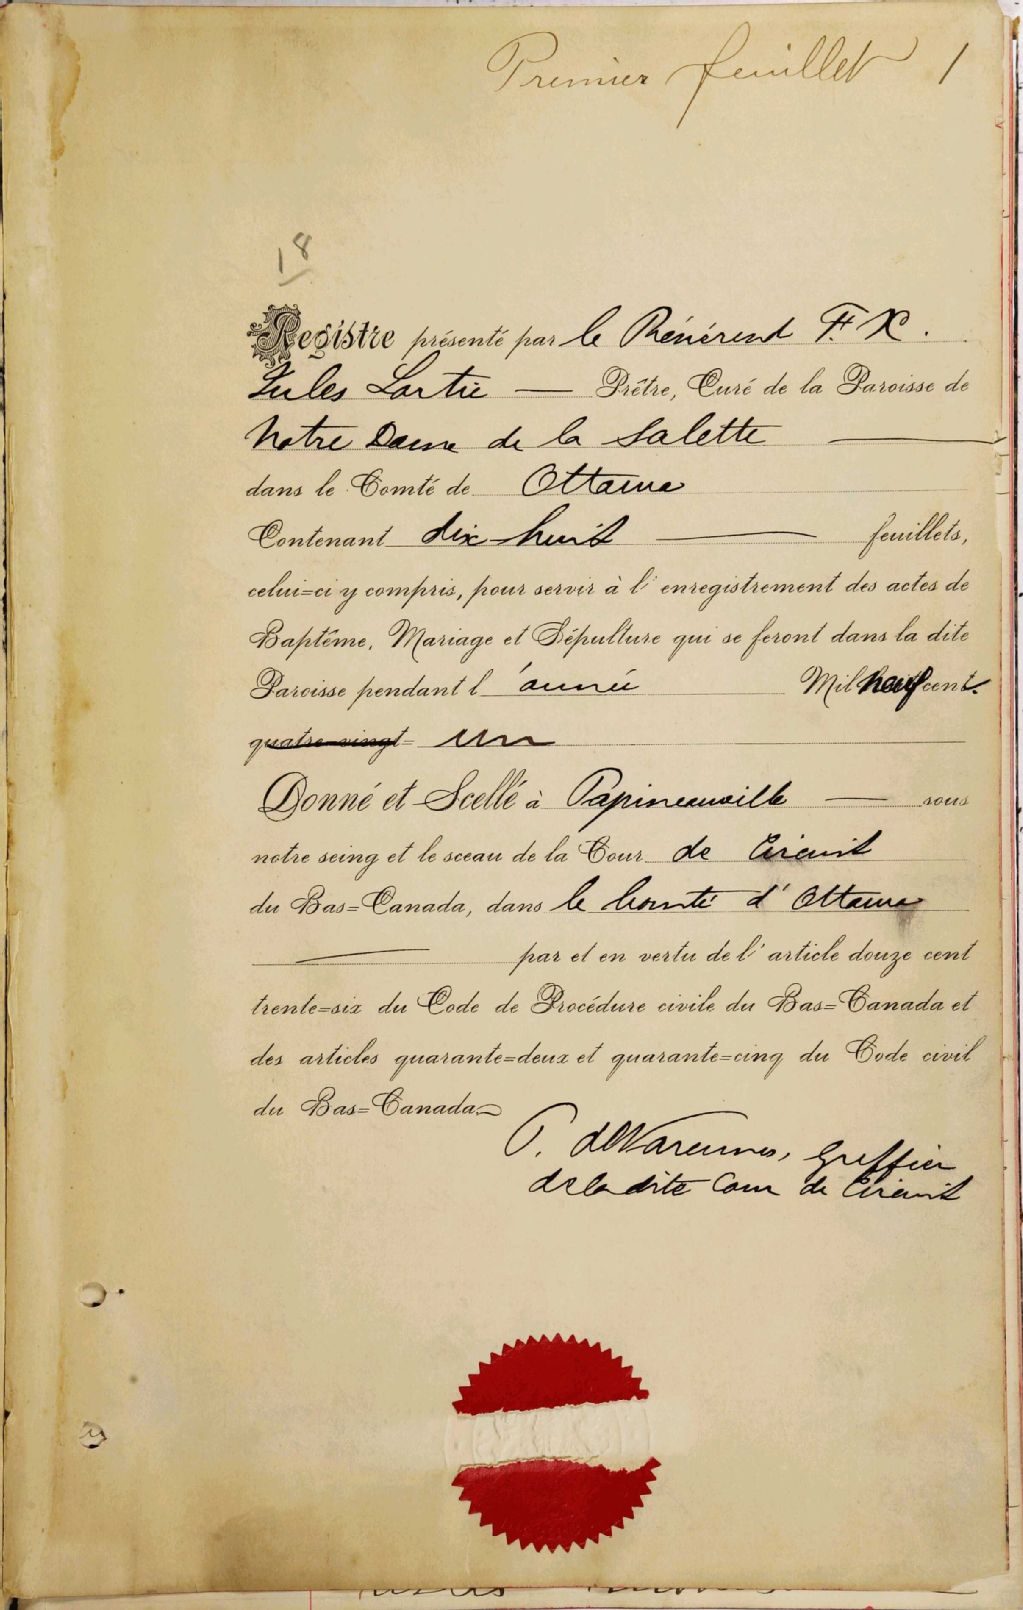 Premier feuillet 1
18
Registre présenté par le Révérend F. X.
Jules Lortie — Prêtre, Curé de la Paroisse de
Notre Dame de la Salette —
dans le Comté de Ottawa
Contenant dix-huit — feuillets,
celui=ci y compris, pour servir à l'enregistrement des actes de
Baptême, Mariage et Sépulture qui se feront dans la dite
Paroisse pendant l'année Mil neuf cent
quatre-vingt= un
Donné et Scellé à Papineauville — sous
notre seing et le sceau de la Cour de Circuit
du Bas=Canada, dans le Comté d'Ottawa
— par et en vertu de l'article douze cent
trente=six du Code de Procédure civile du Bas=Canada et
des articles quarante=deux et quarante=cinq du Code civil
du Bas=Canada.
deVarennes, Greffier
de la dite Cour de Circuit